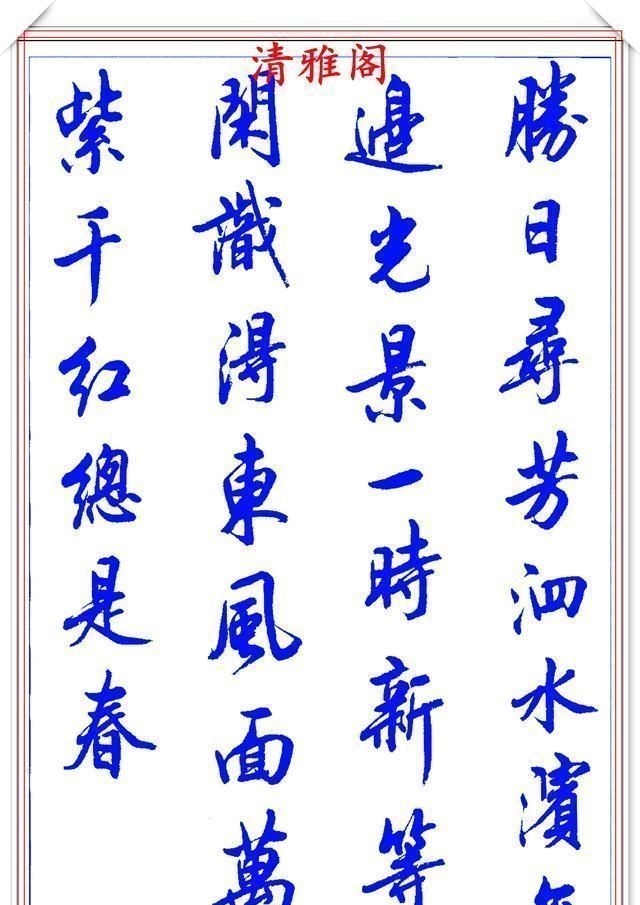 清雅阁
勝日尋芳泗水濱
邉光景一時新等
閑識得東風面萬
紫千红總是春